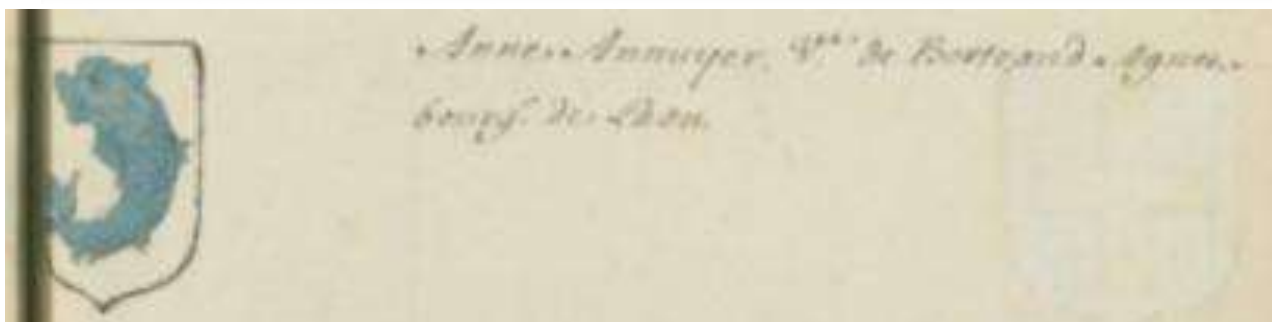 Anne Annuyer, V.ve de Bertrand Agnes
bourg. de Lion.